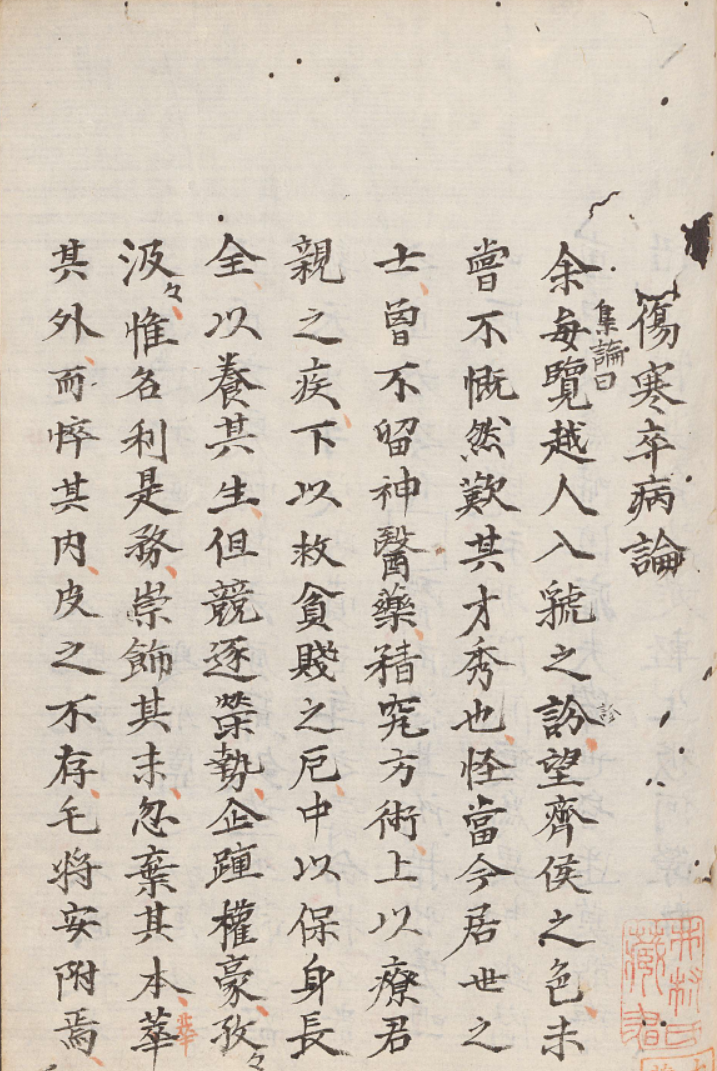 傷寒卒病論
集論曰
余每覽越人入虢之訡望齊侯之色未
診
嘗不慨然歎其才秀也怪當今居世之
士曽不留神醫藥精究方術上以療君
親之疾下以救貧賤之厄中以保身長
全以養其生但競逐榮勢企踵權豪孜々
汲々惟名利是務崇飾其末忽棄其本華
華
其外而悴其内皮之不存毛将安附焉
藏書